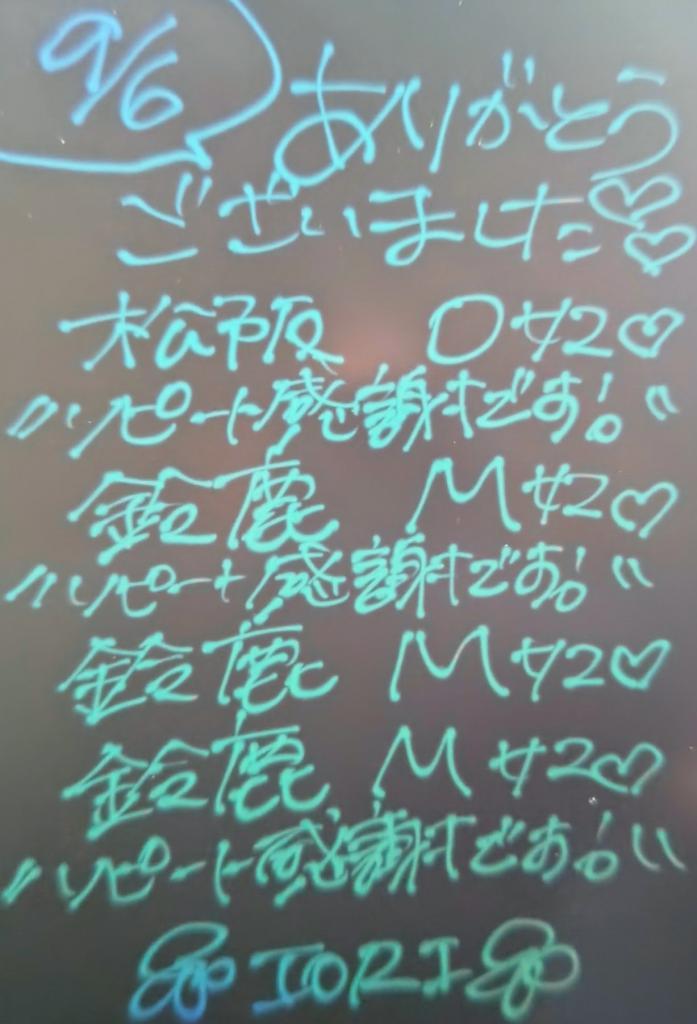 9/6
ありがとう
ございました♡♡
松阪 Oサマ♡
"リピート感謝です!。"
鈴鹿 Mサマ♡
"リピート感謝です!。"
鈴鹿 Mサマ♡
鈴鹿 Mサマ♡
"リピート感謝です!。"
IORI